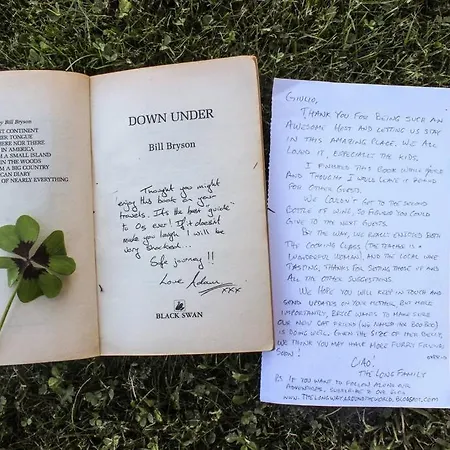 by Bill Bryson
T CONTINENT
HER TONGUE
HERE NOR THERE
IN AMERICA
M A SMALL ISLAND
IN THE WOODS
M A BIG COUNTRY
CAN DIARY
OF NEARLY EVERYTHING
DOWN UNDER
Bill Bryson
Thought you might
enjoy this book on your
travels. It's the best "guide"
to Oz ever! If it doesn't
make you laugh I will be
very shocked...
Safe journey!!
Love Adam
xxx
BLACK SWAN
GIULIO,
THANK YOU FOR BEING SUCH AN
AWESOME HOST AND LETTING US STAY
IN THIS AMAZING PLACE. WE ALL
LOVED IT, ESPECIALLY THE KIDS.
I FINISHED THIS BOOK WHILE HERE
AND THOUGHT I WOULD LEAVE IT BEHIND
FOR OTHER GUESTS.
WE COULDN'T GET TO THE SECOND
BOTTLE OF WINE, SO FIGURED YOU COULD
GIVE TO THE NEXT GUESTS.
BY THE WAY, WE REALLY ENJOYED BOTH
THE COOKING CLASS (THE TEACHER IS A
WONDERFUL WOMAN) AND THE LOCAL WINE
TASTING, THANKS FOR SETTING THOSE UP AND
ALL THE OTHER SUGGESTIONS.
WE HOPE YOU WILL KEEP IN TOUCH AND
SEND UPDATES ON YOUR MOTHER, BUT MORE
IMPORTANTLY, BRYCE WANTS TO MAKE SURE
OUR NEW CAT FRIEND (WE NAMED HIM BOO BOO)
IS DOING WELL. GIVEN THE SIZE OF HER BELLY,
WE THINK YOU MAY HAVE MORE FURRY FRIENDS
SOON!
CIAO!
THE LONG FAMILY
PS IF YOU WANT TO FOLLOW ALONG OUR
ADVENTURES, SUBSCRIBE TO OUR BLOG
WWW.THELONGWAYAROUNDTHEWORLD.BLOGSPOT.COM